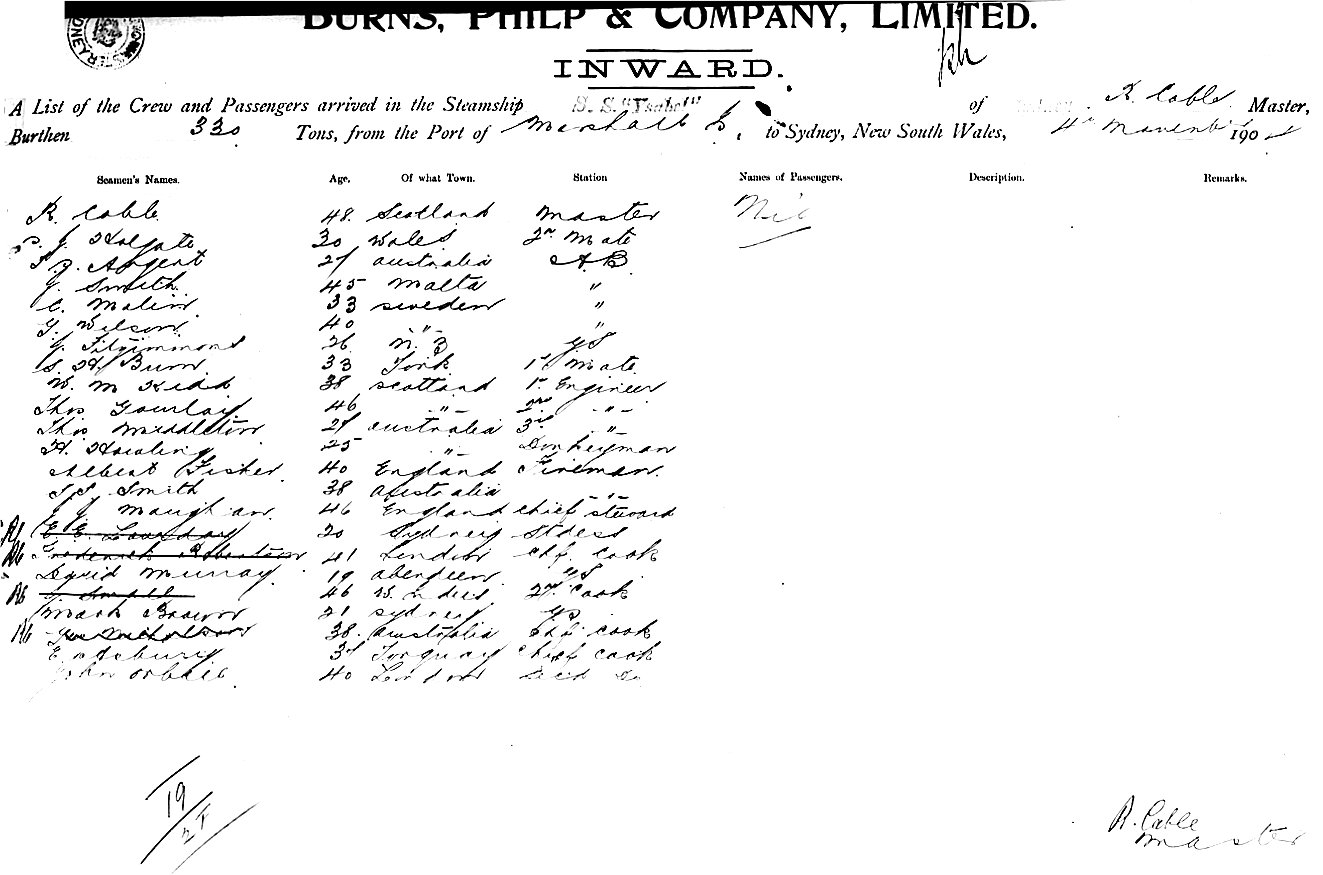 BURNS, PHILP & COMPANY, LIMITED.
INWARD.
A List of the Crew and Passengers arrived in the Steamship S. S. "Ysabel" of R. Cable Master,
Burthen 330 Tons, from the Port of Marshall to Sydney, New South Wales, 4th 190
Seamen's Names. Age, Of what Town. Station Names of Passengers. Description. Remarks.
R. Cable 48. Scotland Master Nil
J. Holgate 30 Wales 2nd Mate
J. Argent 27 Australia AB
J. Smith 45 Malta "
C. Malin 33 Sweden "
G. Wilson 40 -"- "
J. Fitzimmons 26 N. Z
S. H. Burn 33 York 1st Mate
W. M Kidd 38 Scotland 1st Engineer
Thos Gourlay 46 -"- 2nd -"-
Thos Middleton 27 Australia 3rd -"-
H. Hosking 25 -"- Donkeyman
Albert Fisher 40 England Fireman
Smith 38 Australia -"-
J. Maughan 46 England chief steward
RB E. E. Loveday 20 Sydney Stdess
RB Frederick Robertson 41 London chf. cook
David Murray 19 aberdeen
RB J. Small 46 W. Indies 2nd Cook
Mark Brown 21 Sydney
RB Nicholson 38. Australia Chf. cook
E 37 Torquay chief cook
John 40 London
19
/
R. Cable
Master